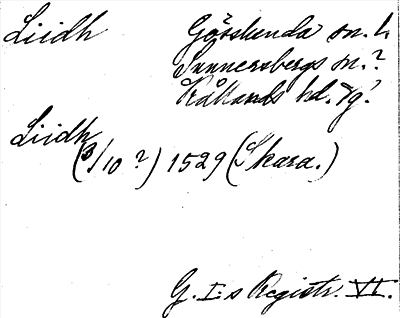 Liidh
Gösslunda sn. l.
Sunnersbergs sn.?
Kållands hd. Vg?
Liidh
(3/10 ?) 1529 (Skara.)
G. I:s Registr. VI.